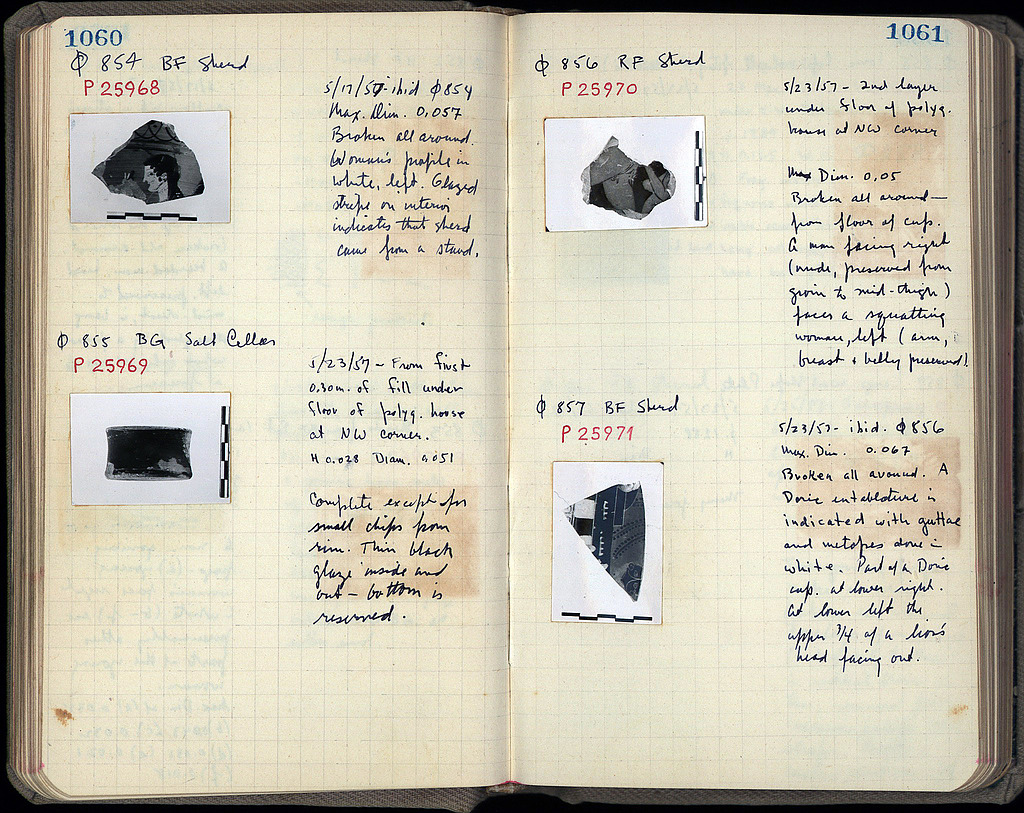 1060
Φ 854 BF Sherd
P 25968
5/17/57 - ibid Φ 854
Max. Dim. 0,057
Broken all around.
Woman's profile in
white, left. Glazed
stripe on interior
indicates that sherd
came from a stand.
Φ 855 BG Salt Cellar
P 25969
5/23/57 - From first
0.30m. of fill under
floor of polyg. house
at NW corner.
H 0.028 Diam. 0.051
Complete except for
small chips from
rim. Thin black
glaze inside and
out - bottom is
reserved.
1061
Φ 856 RF Sherd
P 25970
5/23/57 - 2nd layer
under floor of polyg.
house at NW corner
Max Dim. 0,05
Broken all around -
from floor of cup.
A man facing right
(nude, preserved from
groin to mid-thigh)
faces a squatting
woman, left (arm,
breast + belly preserved).
Φ 857 BF Sherd
P 25971
5/23/57 - ibid. Φ 856
Max. Dim. 0.067
Broken all around. A
Doric entablature is
indicated with guttae
and metopes done in
white. Part of a Doric
cap. at lower right.
At lower left the
upper 3/4 of a lion's
head facing out.